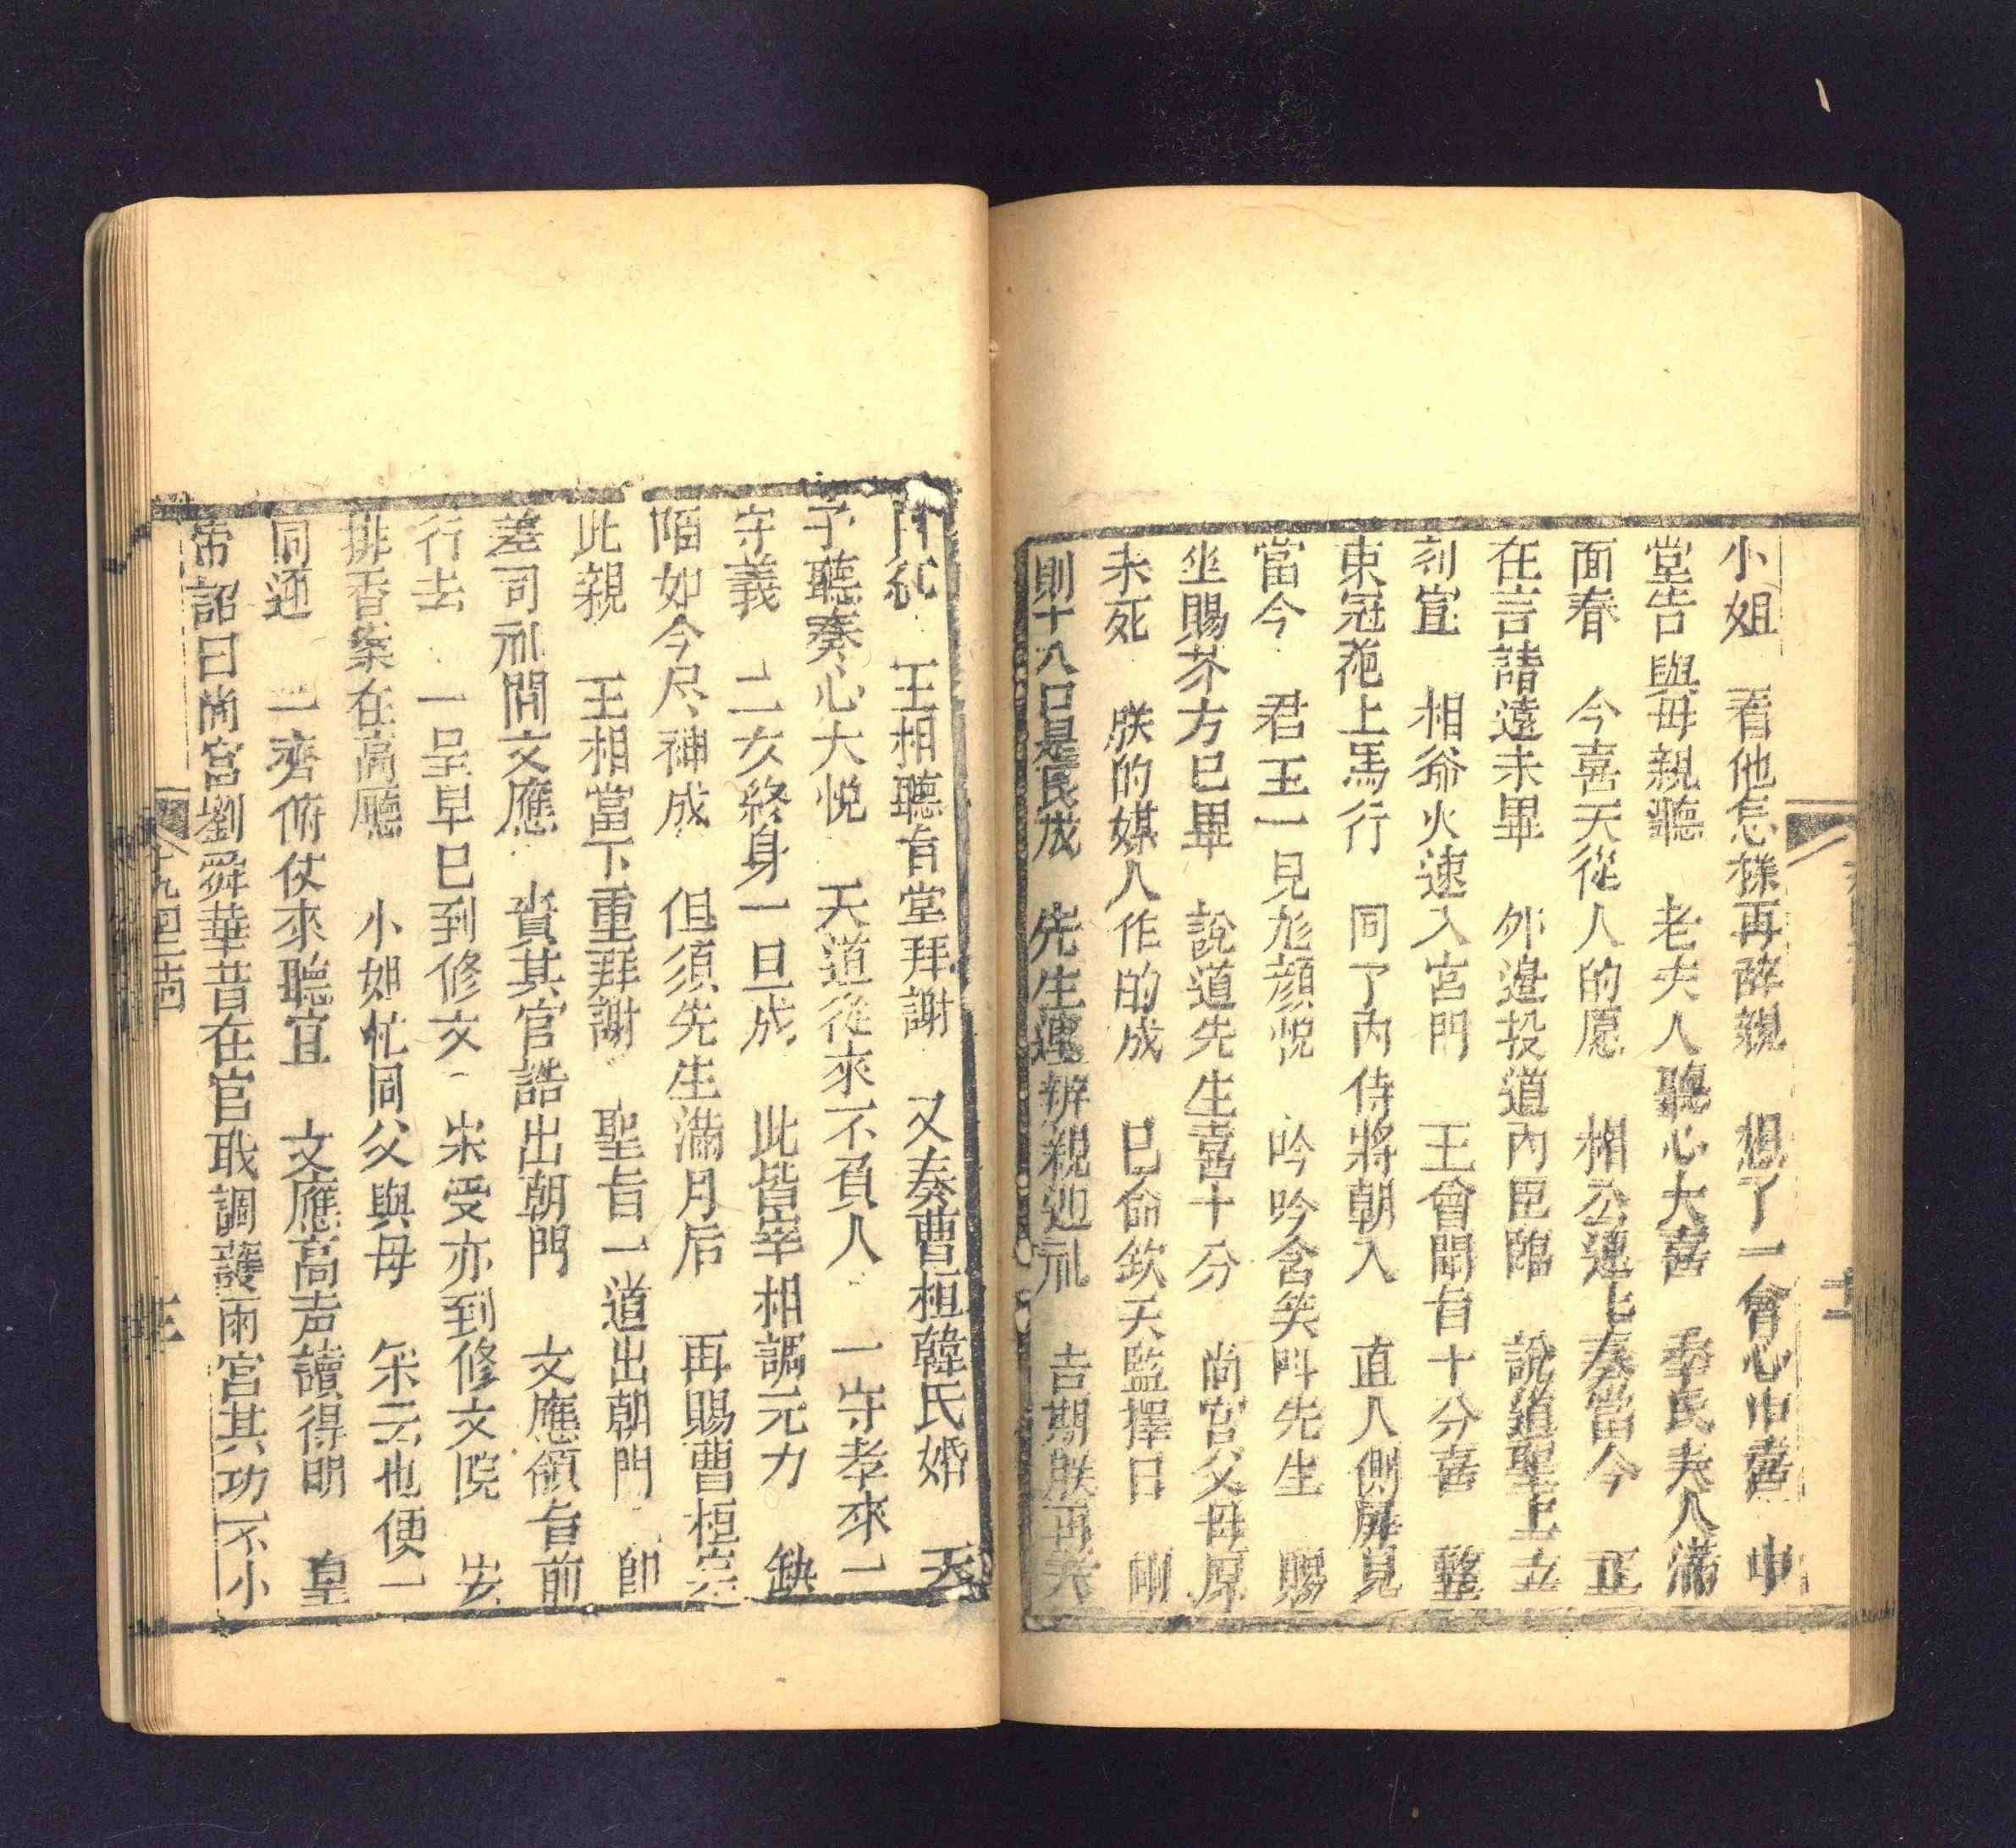 小姐　看他怎樣再辭親　想了一會心中喜　中
堂告與母親聽　老夫人聽心大喜　季氏夫人滿
面春　今喜天從人的愿　相公連上奏當今　正
在言請遠未畢　外邊投道內臣臨　說道聖上立
刻宣　相爺火速入宮門　王曾聞旨十分喜　整
東冠袍上馬行　同了內侍將朝入　直入側屏見
當今　君王一見尨顔悦　吟吟含笑叫先生　賜
坐賜茶方已畢　說道先生喜十分　尚宮父母原
未死　朕的媒人作的成　已命欽天監擇日　剛
則十八日是良成　先生速辦親迎礼　吉期朕再
王相聽旨堂拜謝　又奏曹桓韓氏婚　天
子聽奏心大悅　天道從來不負人　一守孝來一
守義　二女終身一旦成　此皆宰相調元力　缺
陷如今尽神成　但須先生滿月后　再賜曹桓完
此親　王相當下重拜謝　聖旨一道出朝門　即
差司礼間文應　賫其官誥出朝門　文應領旨前
行去　一呈早已到修文　宋受亦到修文院　安
排香案在高廳　小姐忙同父與母　采云也便一
同迊　一齊俯伏來聽宣　文應高声讀得明　皇
帝詔曰尚宮劉舜華昔在官職調護雨宮其功不小
十九回